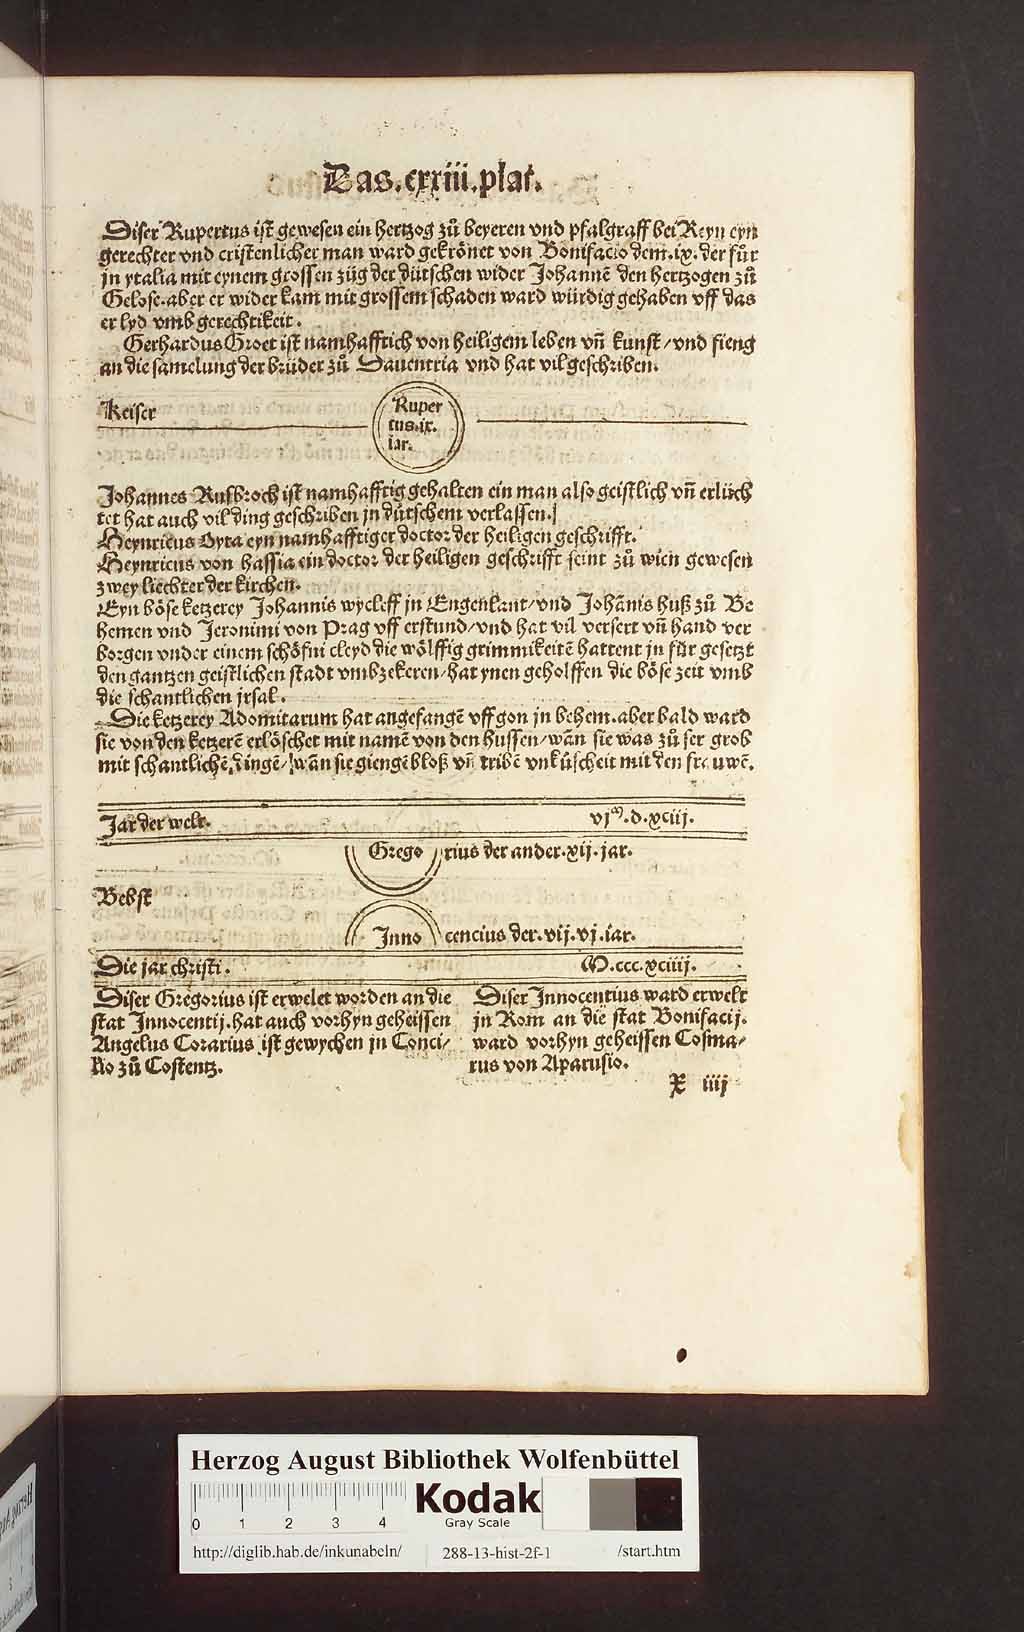 Das.cxxiii.plat.
Diser Rupertus ist gewesen ein hertzog zů beyeren vnd pfalgraff bei Reyn eyn
gerechter vnd cristenlicher man ward gekrônet von Bonifacio dem.ix. der fůr
jn ytalia mit eynem grossen züg der dütschen wider Johannē den hertzogen zů
Gelose.aber er wider kam mit grossem schaden ward würdig gehaben vff das
er lyd vmb gerechtikeit.
Gerhardus Groet ist namhafftich von heiligem leben vñ kunst/vnd fieng
an die samelung der brüder zů Dauentria vnd hat vil geschriben.
Keiser
Ruper
tus.ix.
iar.
Johannes Rusbroch ist namhafftig gehalten ein man also geistlich vñ erlüch
tet hat auch vil ding geschriben jn dütschem verlassen.
Heynricus Oyta eyn namhafftiger doctor der heiligen geschrifft.
Heynricus von hassia ein doctor der heiligen geschrifft seint zů wien gewesen
zwey liechter der kirchen.
Eyn bôse ketzerey Johannis wycleff jn Engenlant/vnd Johānis huß zů Be
hemen vnd Jeronimi von Prag vff erstund/vnd hat vil versert vñ hand ver
borgen vnder einem schôfni cleyd die wôlffig grimmikeitē hattent jn für gesetzt
den gantzen geistlichen stadt vmbzekeren/hat ynen geholffen die bôse zeit vmb
die schantlichen jrsal.
Die ketzerey Adomitarum hat angefangē vffgon jn behem.aber bald ward
sie von den ketzerē erlôschet mit namē von den hussen/wān sie was zů ser grob
mit schantlichē dingē/wān sie giengē bloß vñ tribē vnkůscheit mit den frauwē.
Jar der welt. vjᵐ.d.xciij.
Grego rius der ander.xij.jar.
Bebst
Inno cencius der.vij.vj.iar.
Die jar christi. M.ccc.xciiij.
Diser Gregorius ist erwelet worden an die
stat Innocentij.hat auch vorhyn geheissen
Angelus Corarius ist gewychen jn Conci/
lio zů Costentz.
Diser Innocentius ward erwelt
jn Rom an die stat Bonifacij.
ward vorhyn geheissen Cosma/
rus von Aparusio.
X iiij
Herzog August Bibliothek Wolfenbüttel
0 1 2 3 4
Kodak
Gray Scale
http://diglib.hab.de/inkunabeln/ 288-13-hist-2f-1 /start.htm